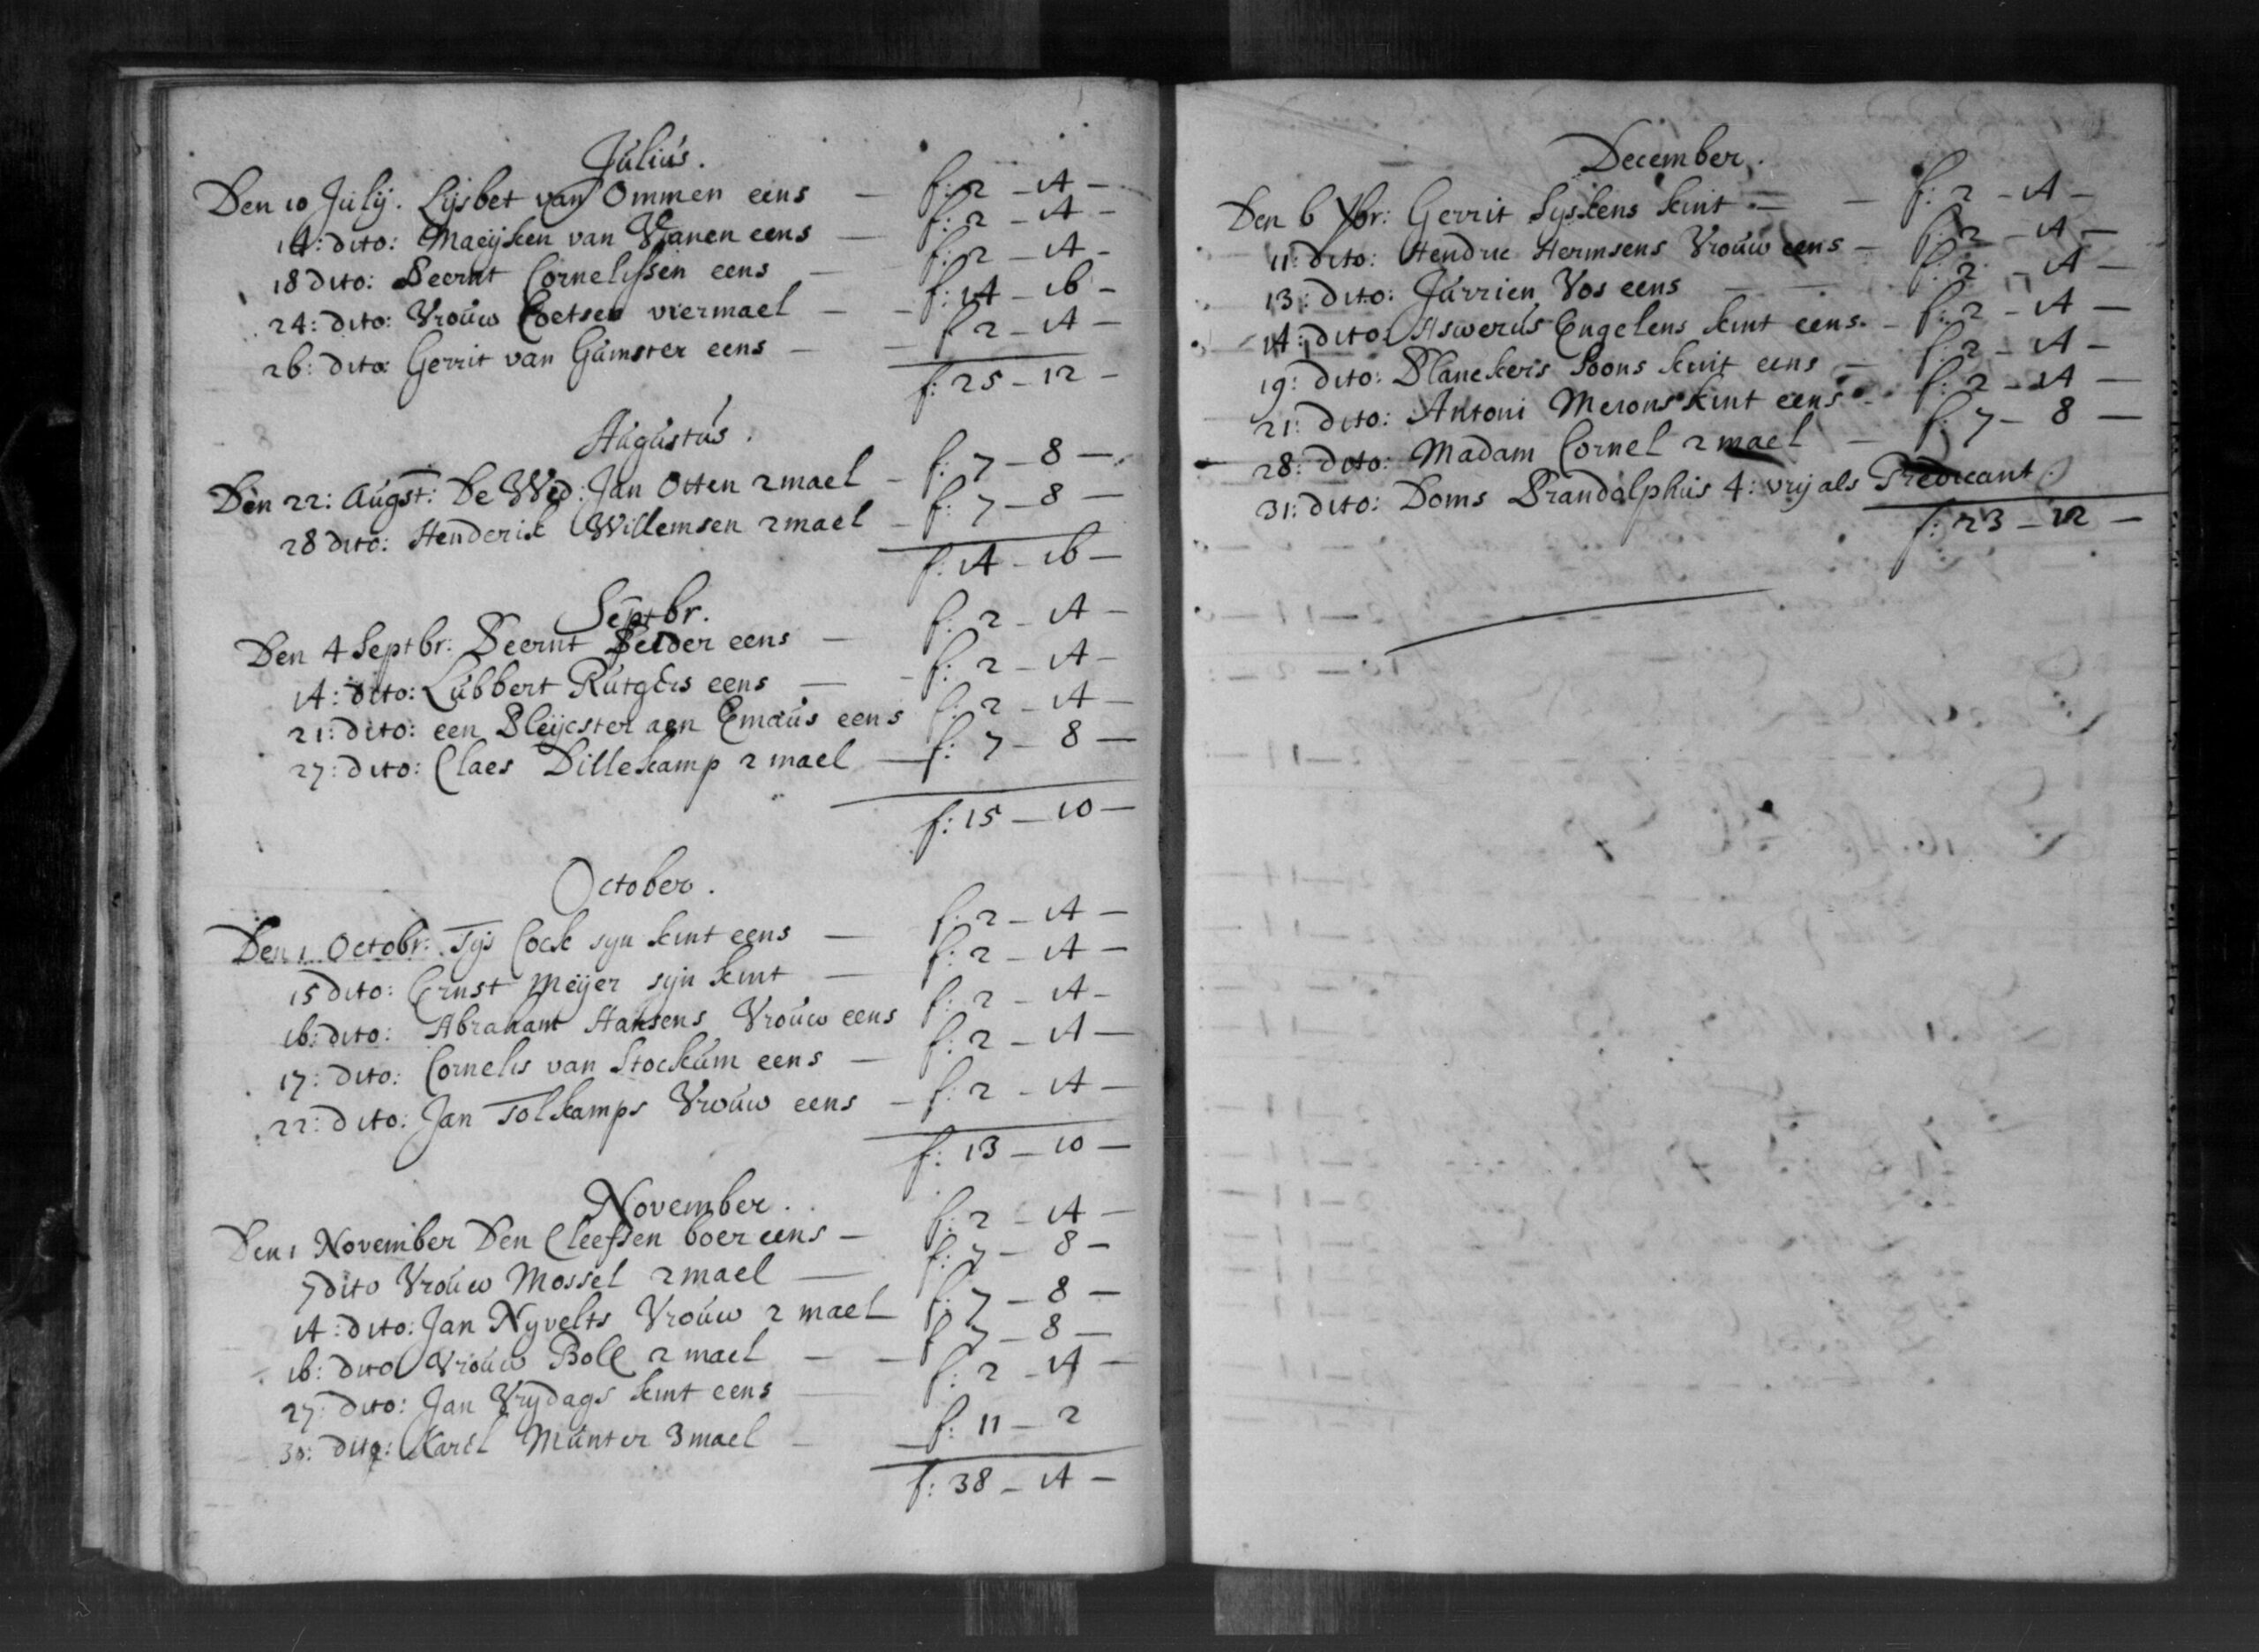 Julius.
Den 10 Julij. Lijsbet van Ommen eens — f: 2 – 14 –
14: dito: Maeijken van Vianen eens — f: 2 – 14 –
18 dito: Beernt Cornelissen eens — f: 2 – 14 –
24: dito: Vrouw Coetsen viermael — f: 14 – 16 –
26: dito: Gerrit van Gumster eens — f: 2 – 14 –
f: 25 – 12 –
Augustus.
Den 22: Augst: De Wed: Jan Otten 2 mael – f: 7 – 8 –
28 dito: Henderik Willemsen 2 mael – f: 7 – 8 –
f: 14 – 16 –
Septbr.
Den 4 Septbr: Beernt Belder eens — f: 2 – 14 –
14: dito: Lubbert Rutgers eens — f: 2 – 14 –
21: dito: een Pleijster aen Emaus eens f: 2 – 14 –
27: dito: Claes Dillekamp 2 mael — f: 7 – 8 –
f: 15 – 10 –
October.
Den 1 Octobr: Tijs Cock syn kint eens — f: 2 – 14 –
15 dito: Ernst Meijer sijn kint — f: 2 – 14 –
16: dito: Abraham Hansens Vrouw eens f: 2 – 14 –
17: dito: Cornelis van Stockum eens — f: 2 – 14 –
22: dito: Jan Tolkamps Vrouw eens – f: 2 – 14 –
f: 13 – 10 –
November.
Den 1 November Den Cleefsen boer eens – f: 2 – 14 –
7 dito Vrouw Mossel 2 mael — f: 7 – 8 –
14: dito: Jan Nyvelts Vrouw 2 mael f: 7 – 8 –
16: dito Vrouw Boll 2 mael — f: 7 – 8 –
27: dito: Jan Vrydags kint eens — f: 2 – 14 –
30: dito: Karel Munter 3 mael — f: 11 – 2
f: 38 – 14 –
December.
Den 6 Xbr: Gerrit Syskens kint — f: 2 – 14 –
11: dito: Hendric Hermsens Vrouw eens – f: 2 – 14 –
13: dito: Jurrien Vos eens — f: 2 – 14 –
14: dito: Aswerus Engelens kint eens. – f: 2 – 14 –
19: dito: Planckers Soons kint eens — f: 2 – 14 –
21: dito: Antoni Merons kint eens – f: 2 – 14 –
28: dito: Madam Cornel 2 mael — f: 7 – 8 –
31: dito: Doms Brandolphus 4: vrij als Predicant.
f: 23 – 12 –